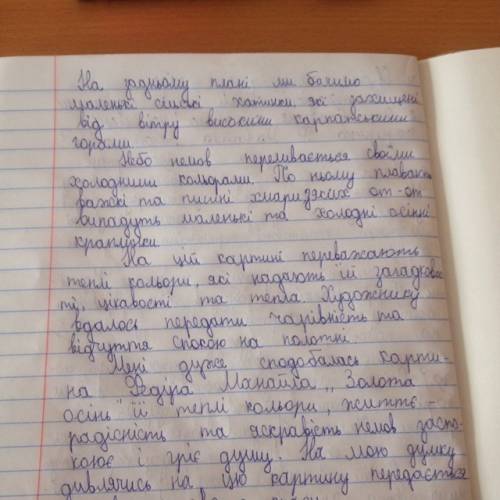 На задньому плані ми бачимо
маленькі сільські хатинки, які захищені
від вітру високими карпатськими
горами.
Небо немов переливається своїми
холодними кольорами. По ньому плавають
важкі та пишні хмари, з яких от-от
випадуть маленькі та холодні осінні
краплинки.
На цій картині переважають
теплі кольори, які надають їй загадково
ті, цікавості та тепла. Художнику
вдалось передати чарівність та
відчуття спокою на полотні.
Мені дуже сподобалась карти-
на Федіра Манайла ,,Золота
осінь" її теплі кольори, життє-
радісність та яскравість немов заспо-
коює і гріє душу. На мою думку
дивлячись на цю картину передається